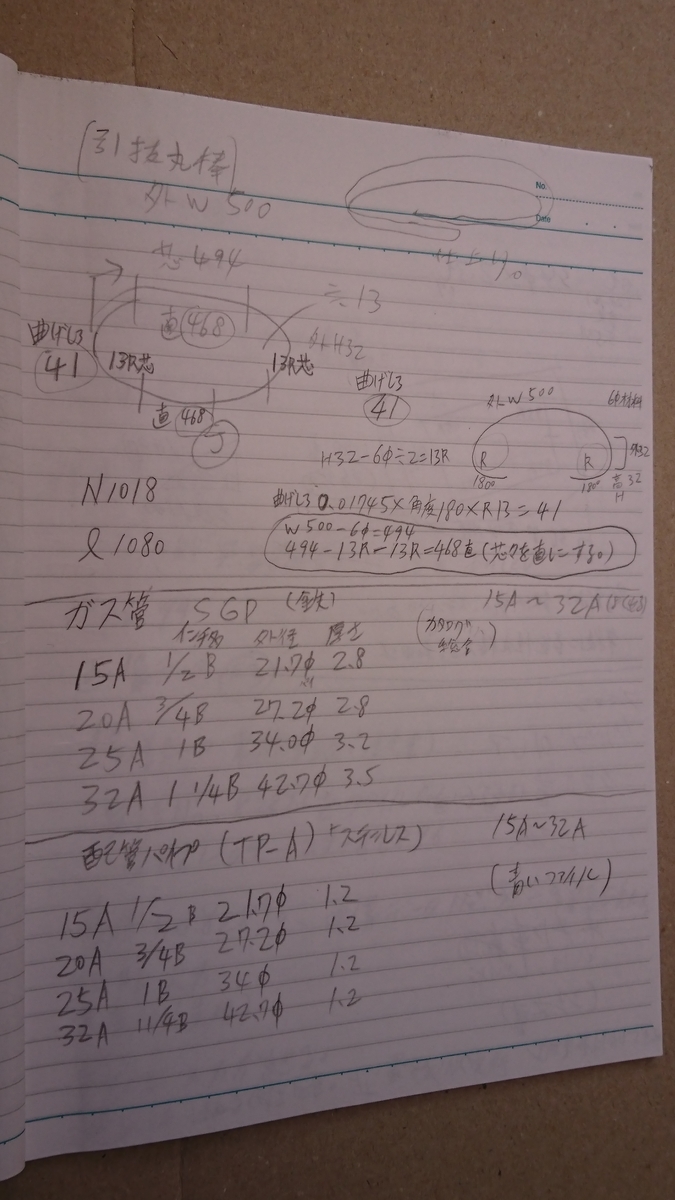 (引抜丸棒)
外W500
No.
Date
芯494
仕上り。
曲げしろ
41
直468
13R芯
13R芯
外H32
直468
J
曲げしろ
41
外W500
6Φ材料
R
R
180°
180°
外32
H32-6Φ÷2=13R
N1018
ℓ1080
曲げしろ 0.01745×角度180×R13=41
W500-6Φ=494
494-13R-13R=468直(芯々を直にする。)
ガス管 SGP (鉄) 15A~32A
インチ 外径 厚さ
(カタログ
15A 1/2B 21.7Φ 2.8
20A 3/4B 27.2Φ 2.8
25A 1B 34.0Φ 3.2
32A 1 1/4B 42.7Φ 3.5
配管パイプ (TP-A) 「ステンレス) 15A~32A
(青いファイル)
15A 1/2B 21.7Φ 1.2
20A 3/4B 27.2Φ 1.2
25A 1B 34Φ 1.2
32A 1 1/4B 42.7Φ 1.2